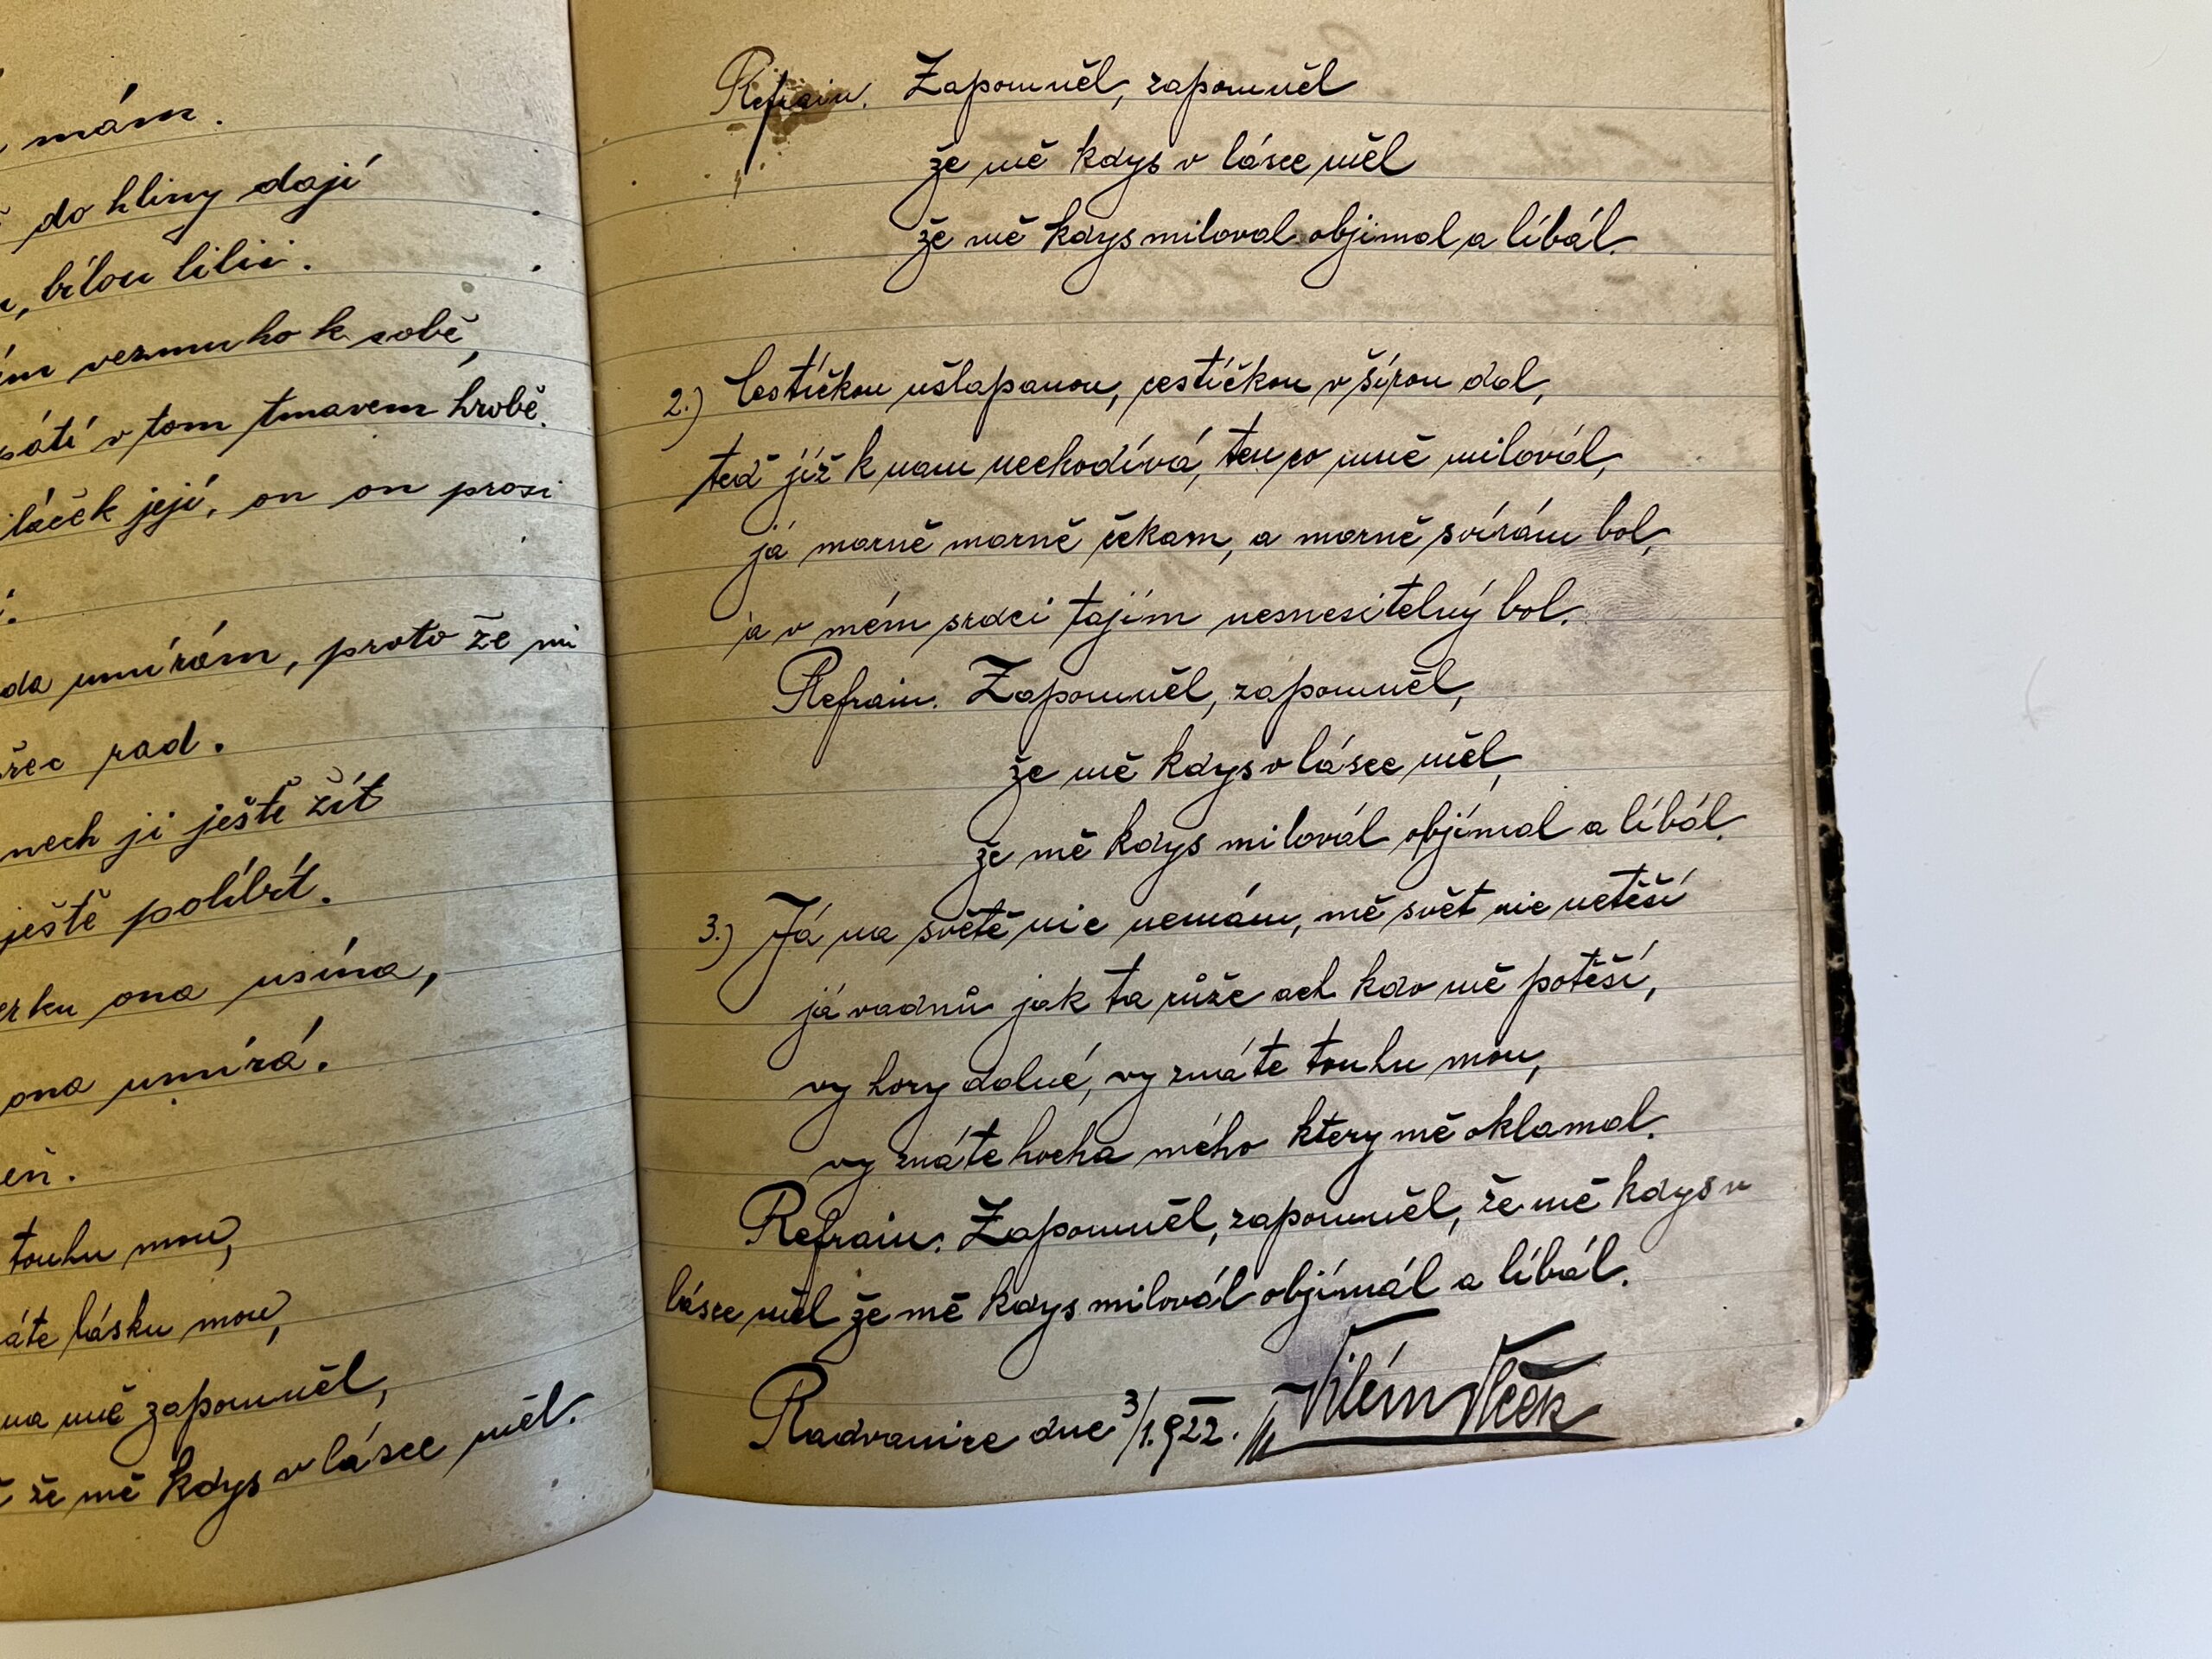 mám.
do hliny dají
bílou lilii.
vezmu ho k sobě,
v tom tmavem hrobě.
láček její, on on prosi
umírám, proto že mi
rad.
nech ji ještě žít
ještě políbit.
ona usína,
ona umírá.
touhu mou,
lásku mou,
na mně zapomněl,
že mě kdys v lásce měl.
Refrain. Zapomněl, zapomněl
že mě kdys v lásce měl
že mě kdys miloval objimal a líbál.
2.) Cestičkou ušlapanou, cestičkou v šírou dal,
teď již k nam nechodívá, ten co mně milovál,
já marně marně čekam, a marně svírám bol,
ja v mém srdci tajím nesnesitelný bol.
Refrain. Zapomněl, zapomněl,
že mě kdys v lásce měl,
že mě kdys milovál objímal a líbál.
3.) Já na světě nic nemám, mě svět nic netěší
já vadnů jak ta růže ach kdo mě potěší,
vy hory dolné, vy znáte touhu mou,
vy znáte hocha mého ktery mě oklamal.
Refrain. Zapomněl, zapomněl, že mě kdys v
lásce měl že mě kdys milovál objímál a líbál.
Radvanice dne 3/1.922. Vilém Vlček